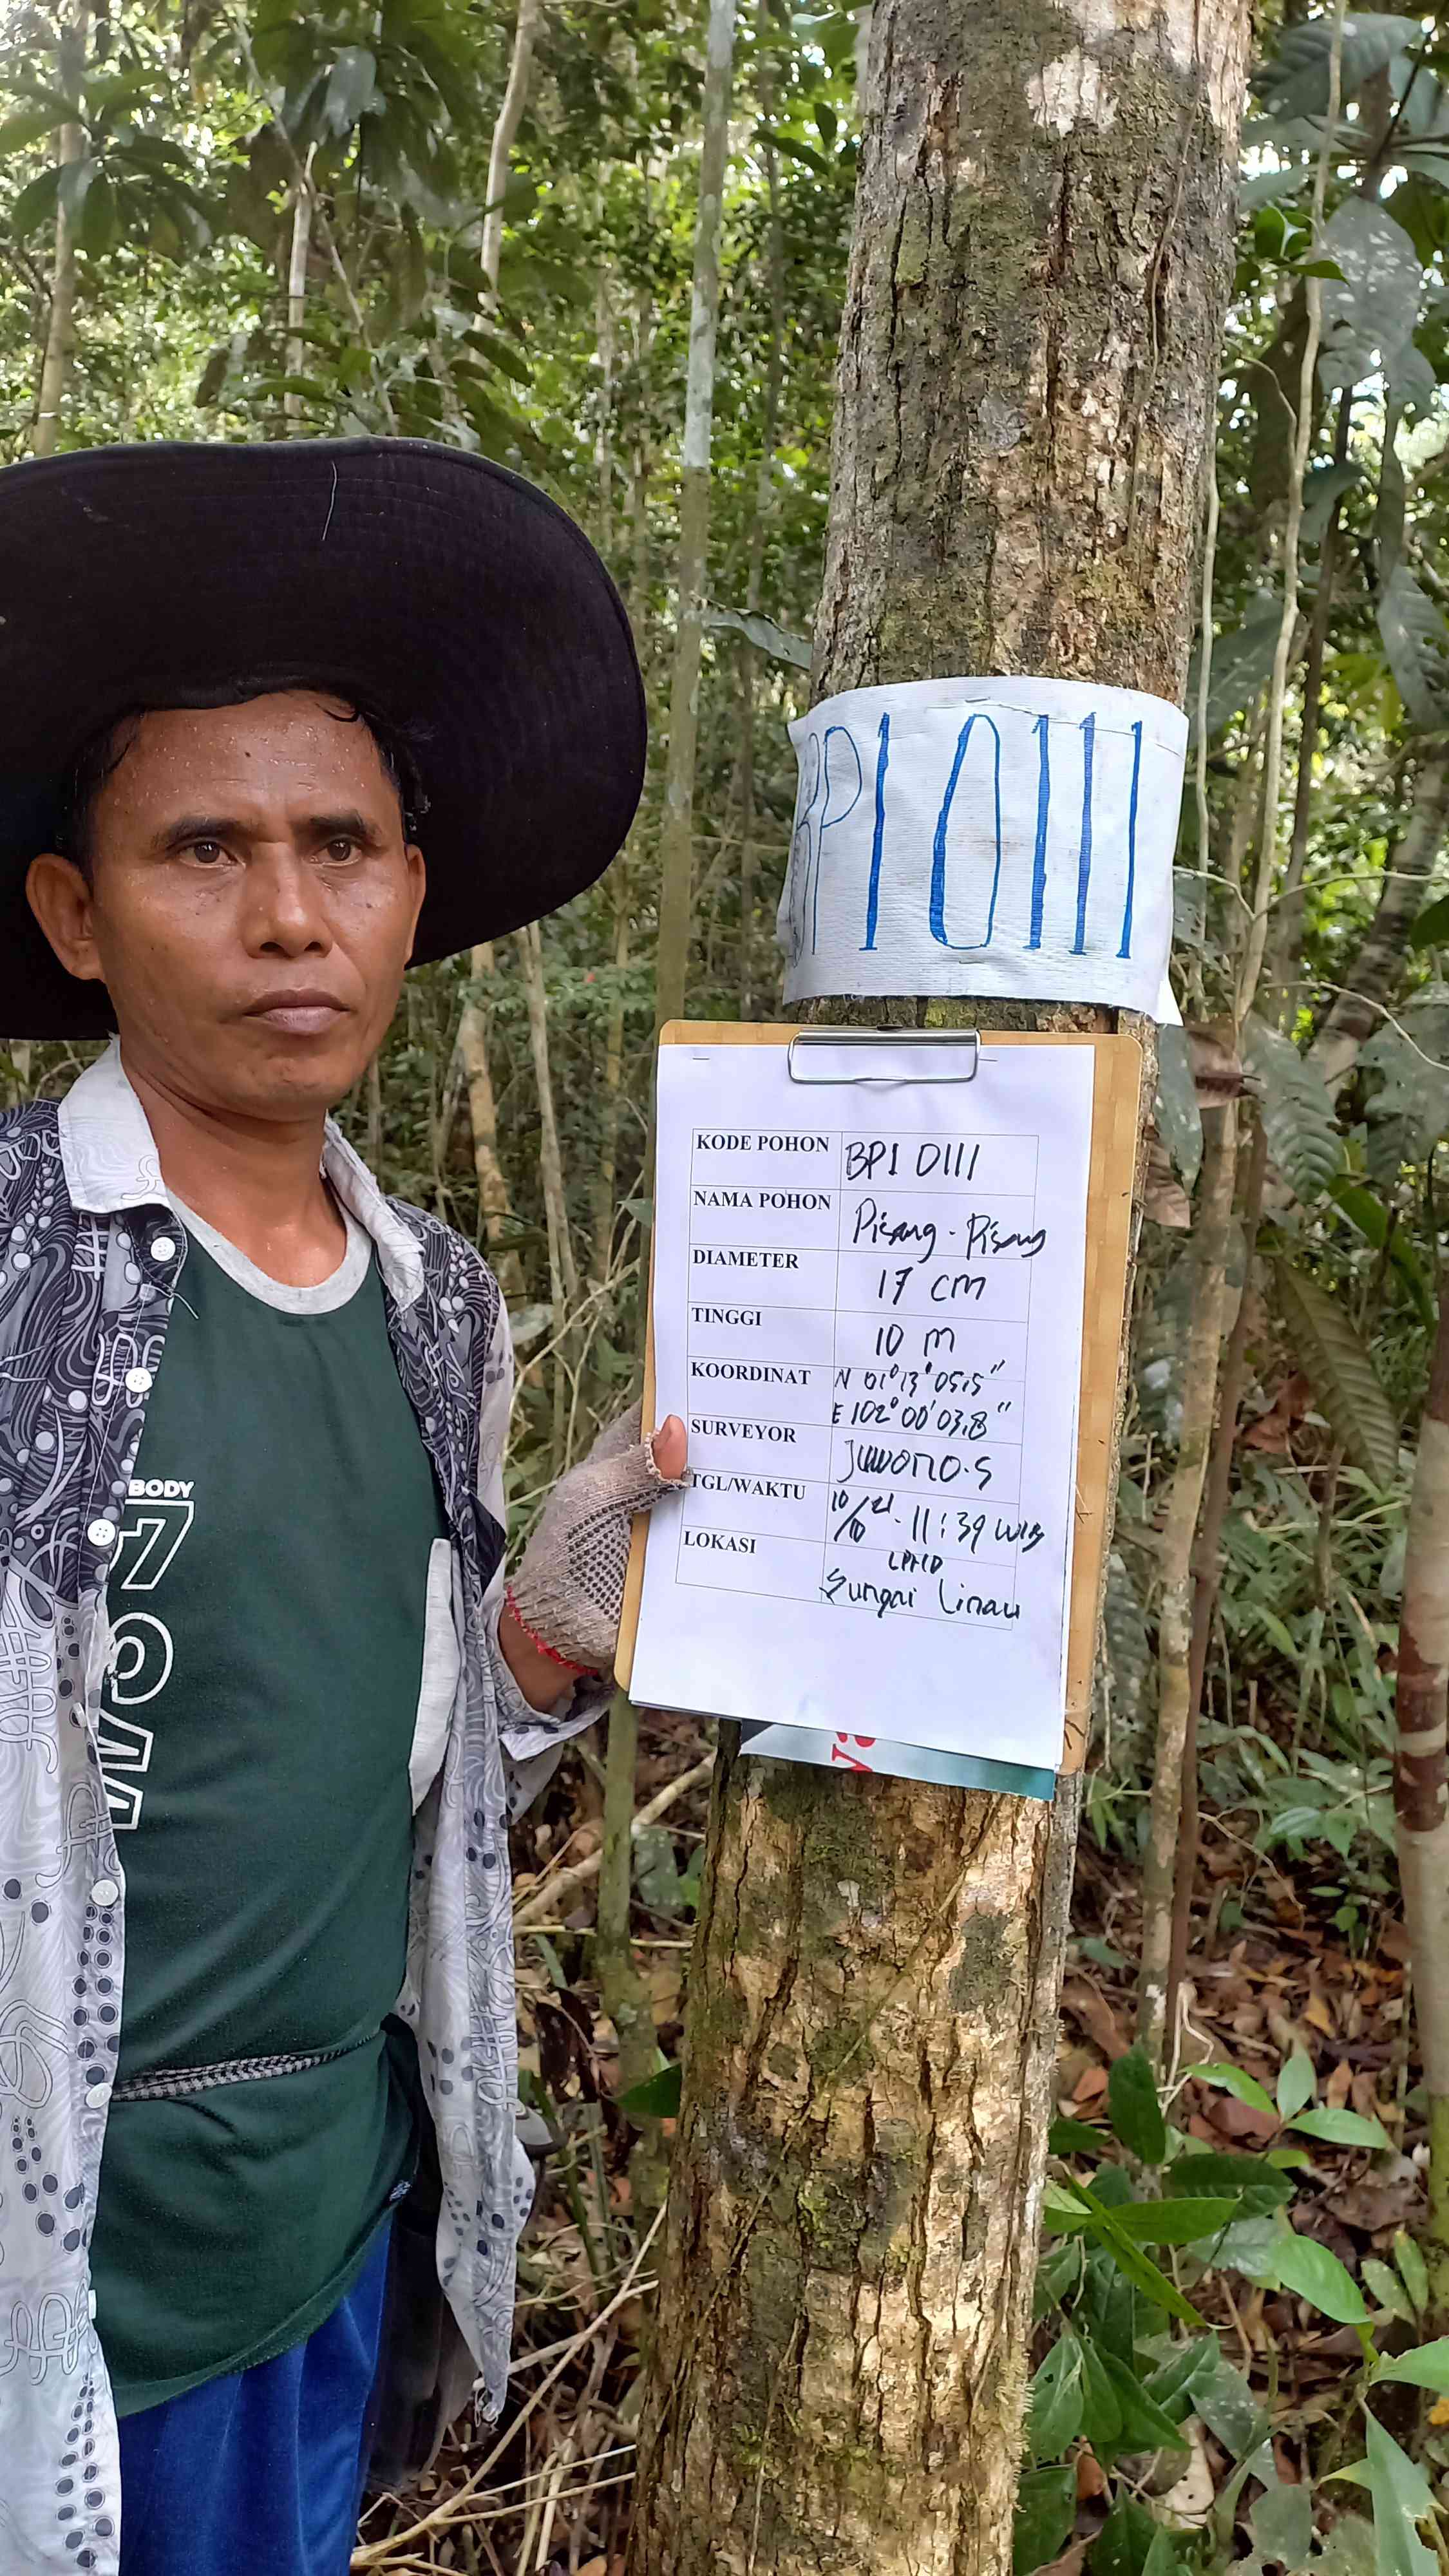 BPI 0111
KODE POHON BPI 0111
NAMA POHON Pisang - Pisang
DIAMETER 17 CM
TINGGI 10 M
KOORDINAT N 01° 13' 05,5"
E 102° 00' 03,8"
SURVEYOR JUWONO.S
TGL/WAKTU 10/10 21. 11:39 WIB
LOKASI LPHD
Sungai Linau
BODY